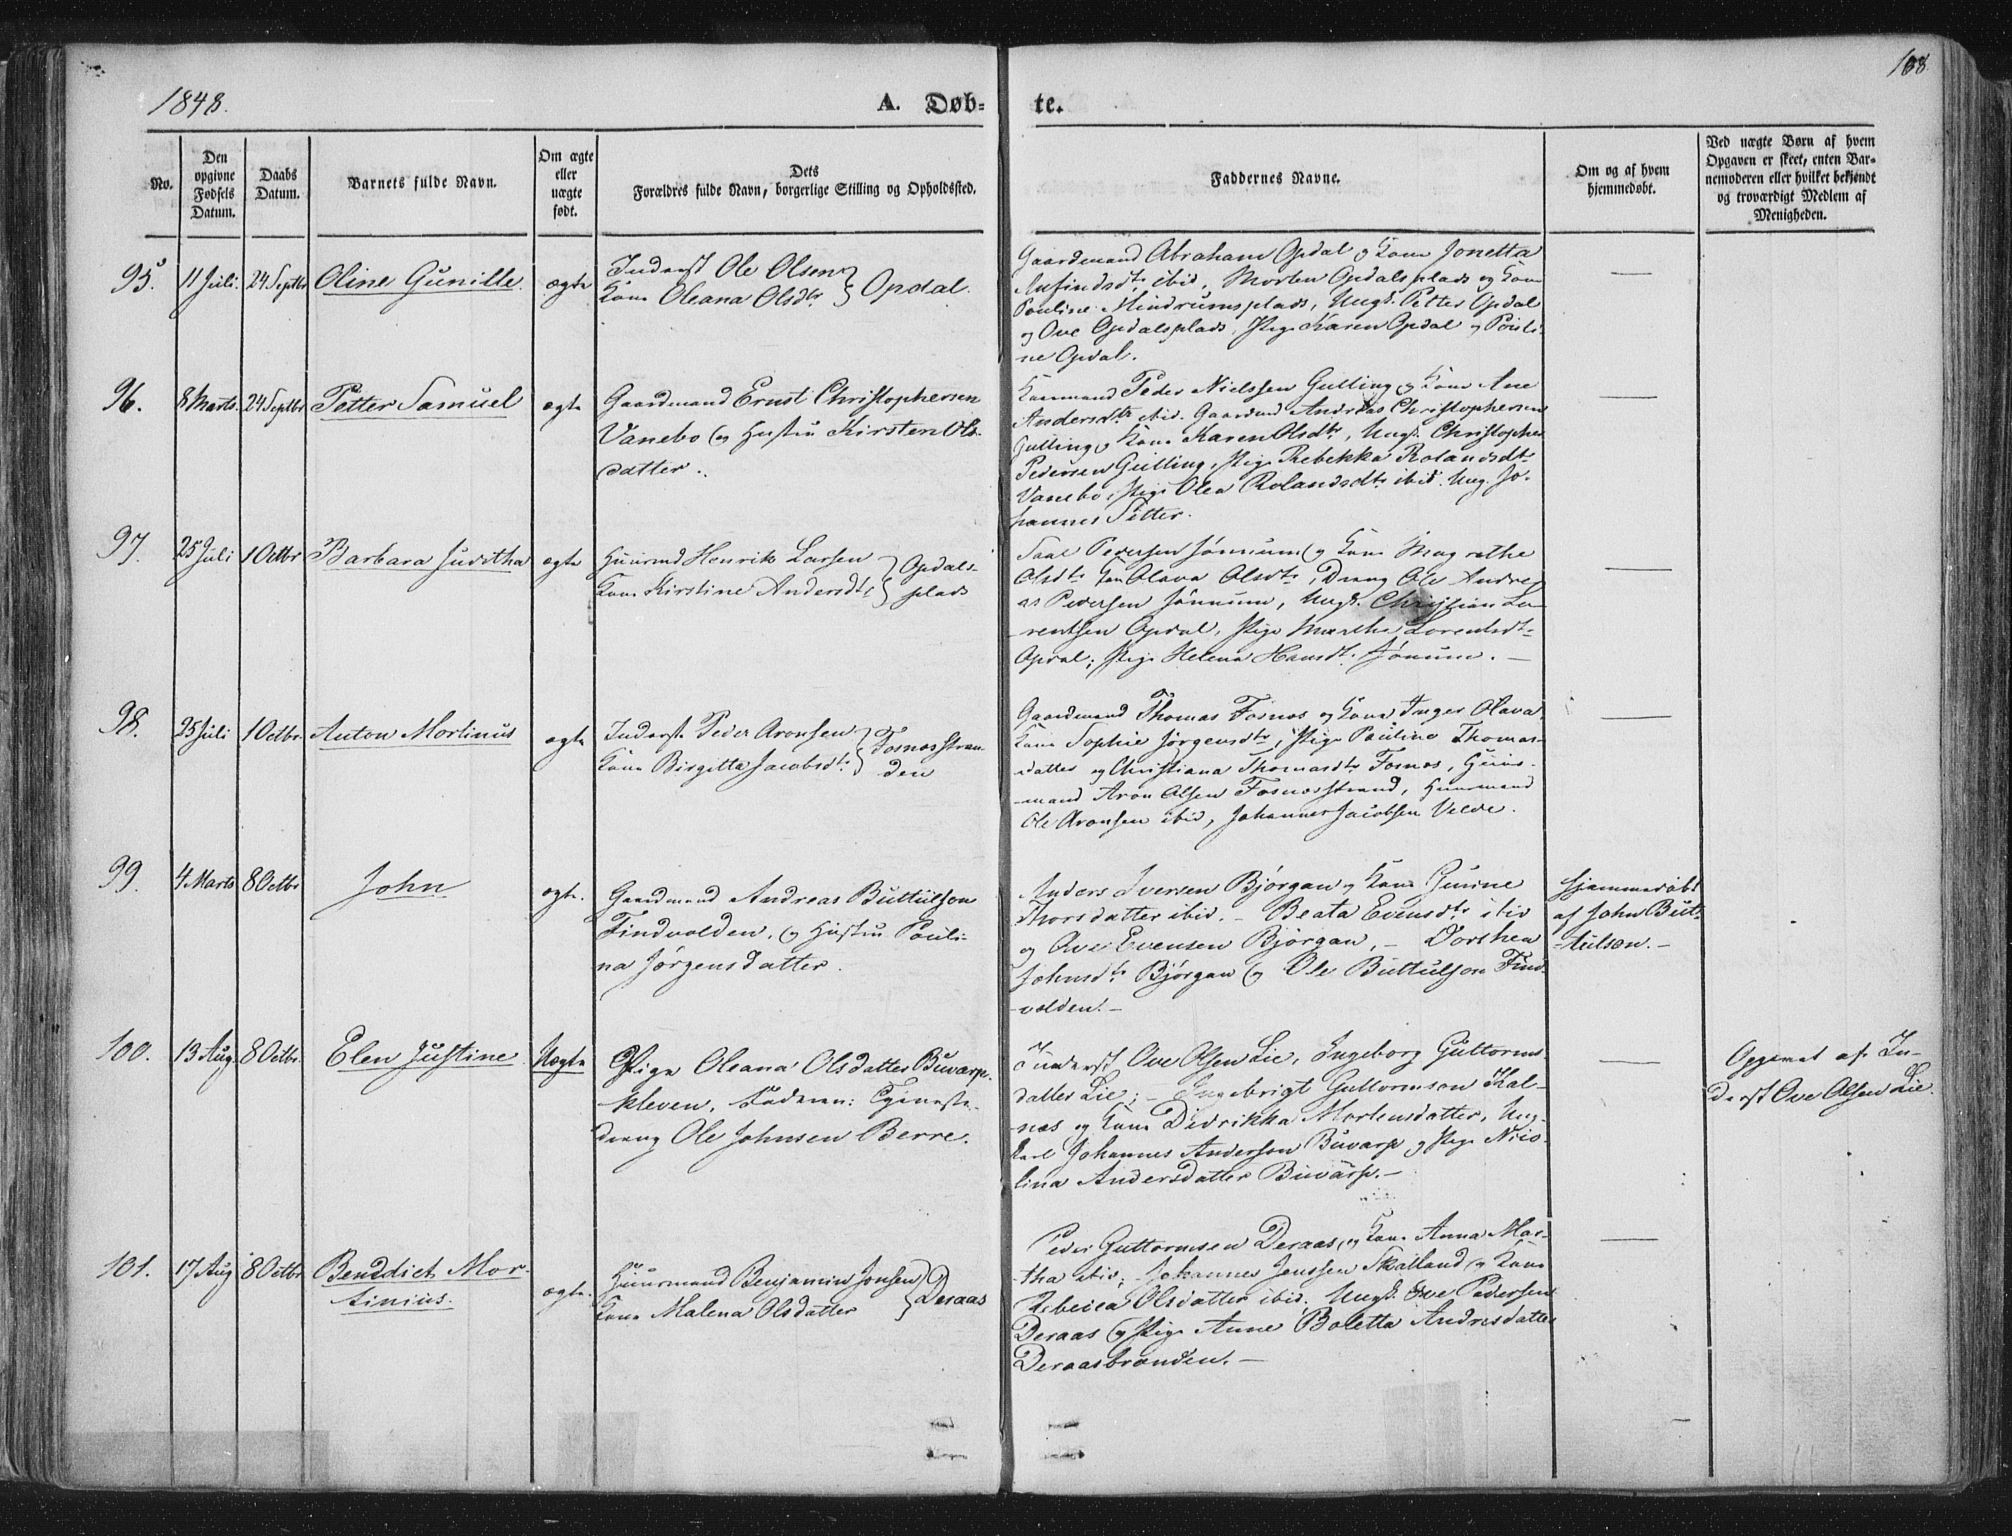 1848.
A. Døb-
te.
168
No.
Den
opgivne
Fødsels
Datum.
Daabs
Datum.
Barnets fulde Navn.
Om ægte
eller
uægte
født.
Dets
Forældres fulde Navn, borgerlige Stilling og Opholdssted.
Faddernes Navne.
Om og af hvem
hjemmedøbt.
Ved uægte Børn af hvem
Opgaven er skeet, enten Bar-
nemoderen eller hvilket bekjendt
og troværdigt Medlem af
Menigheden.
95. 11 Juli. 24 Septbr Oline Gunille. ægte
Inderst Ole Olsen
Kone Oleana Olsdtr } Opdal.
Gaardmand Abraham Opdal og Kone Jonetta
Anfindsdtr ibid, Morten Opdalsplads og Kone
Pauline Mindrumsplads, Ungk. Petter Opdal
og Ove Opdalsplads, Pige Karen Opdal og Pauli-
ne Opdal.
96. 8 Marts. 24 Septbr Petter Samuel ægte
Gaardmand Ernst Christophersen
Vanebo og Hustru Kirsten Ols-
datter.
Peder Nielssen Gulling og Kone Ane
Andersdtr ibid. Gaardmd Andreas Christophersen
Gulling, Kone Karen Olsdtr, Ungk. Christopher
Pedersen Gulling, Pige Rebekka Rolandsdtr
Vanebo, Pige Olea Rolandsdtr ibid. Ung. Jo-
hannes Petter.
97. 25 Juli 1 Octbr Barbara Juditha ægte
Huusmd Henrik Larsen
Kone Kirstine Andersdtr } Opdals-
plads
Pedersen Jønnum og Kone Magrethe
Olsdtr Olava Olsdtr, Dreng Ole Andre-
as Pedersen Jønnum, Ungk. Christian Lo-
rentsen Opdal, Pige Marthe Lorentsdtr
Opdal, Pige Helena Hansdtr Jønum. —
98. 25 Juli 1 Octbr. Anton Martinus ægte
Inderst Peder Aronsen
Kone Birgitta Jacobsdtr } Fosnosstran-
den
Gaardmand Thomas Fosnos og Kone Inger Olava,
Kone Sophie Jørgensdtr, Pige Pauline Thomas-
datter og Christiana Thomasdtr Fosnos, Huus-
mand Aron Olsen Fosnosstrand, Huusmand
Ole Aronsen ibid, Johannes Jacobsen Velde.
99. 4 Marts 8 Octbr John ægte.
Gaardmand Andreas Buttulson
Findvolden, og Hustru Pauli-
na Jørgensdatter.
Anders Iversen Bjørgan og Kone Gunine
Thorsdatter ibid. – Beata Evensdtr ibid
og Ove Evensen Bjørgan, – Dorthea
Johnsdtr Bjørgan og Ole Buttulson Find-
volden. –
Hjemmedøbt
af John But-
tulson. –
100. 13 Aug. 8 Octbr. Elen Justine Uægte
Pige Oleana Olsdatter Buvarp-
kleven, Faderen: Tjeneste-
dreng Ole Johnsen Berre.
Inderst Ove Olsen Lie, Ingeborg Guttorms-
datter Lie; – Ingebrigt Guttormson Kal-
næs og Kone Didrikka Mortensdatter, Ung-
karl Johannes Anderson Buvarp og Pige Nico-
lina Andersdatter Buvarp. –
Opgivet af In-
derst Ove Olsen Lie
101. 17 Aug 8 Octbr Benddict Mor-
tinius. ægte.
Huusmand Benjamin Jonsen
Kone Malena Olsdatter } Deraas
Peder Guttormsen Deraas, og Kone Anna Mar-
tha ibid; – Johannes Jenssen Skatland og Kone
Rebecca Olsdatter ibid, Ungk. Ove Pedersen
Deraas og Pige Anne Boletta Andresdatter
Deraasbrænden. –